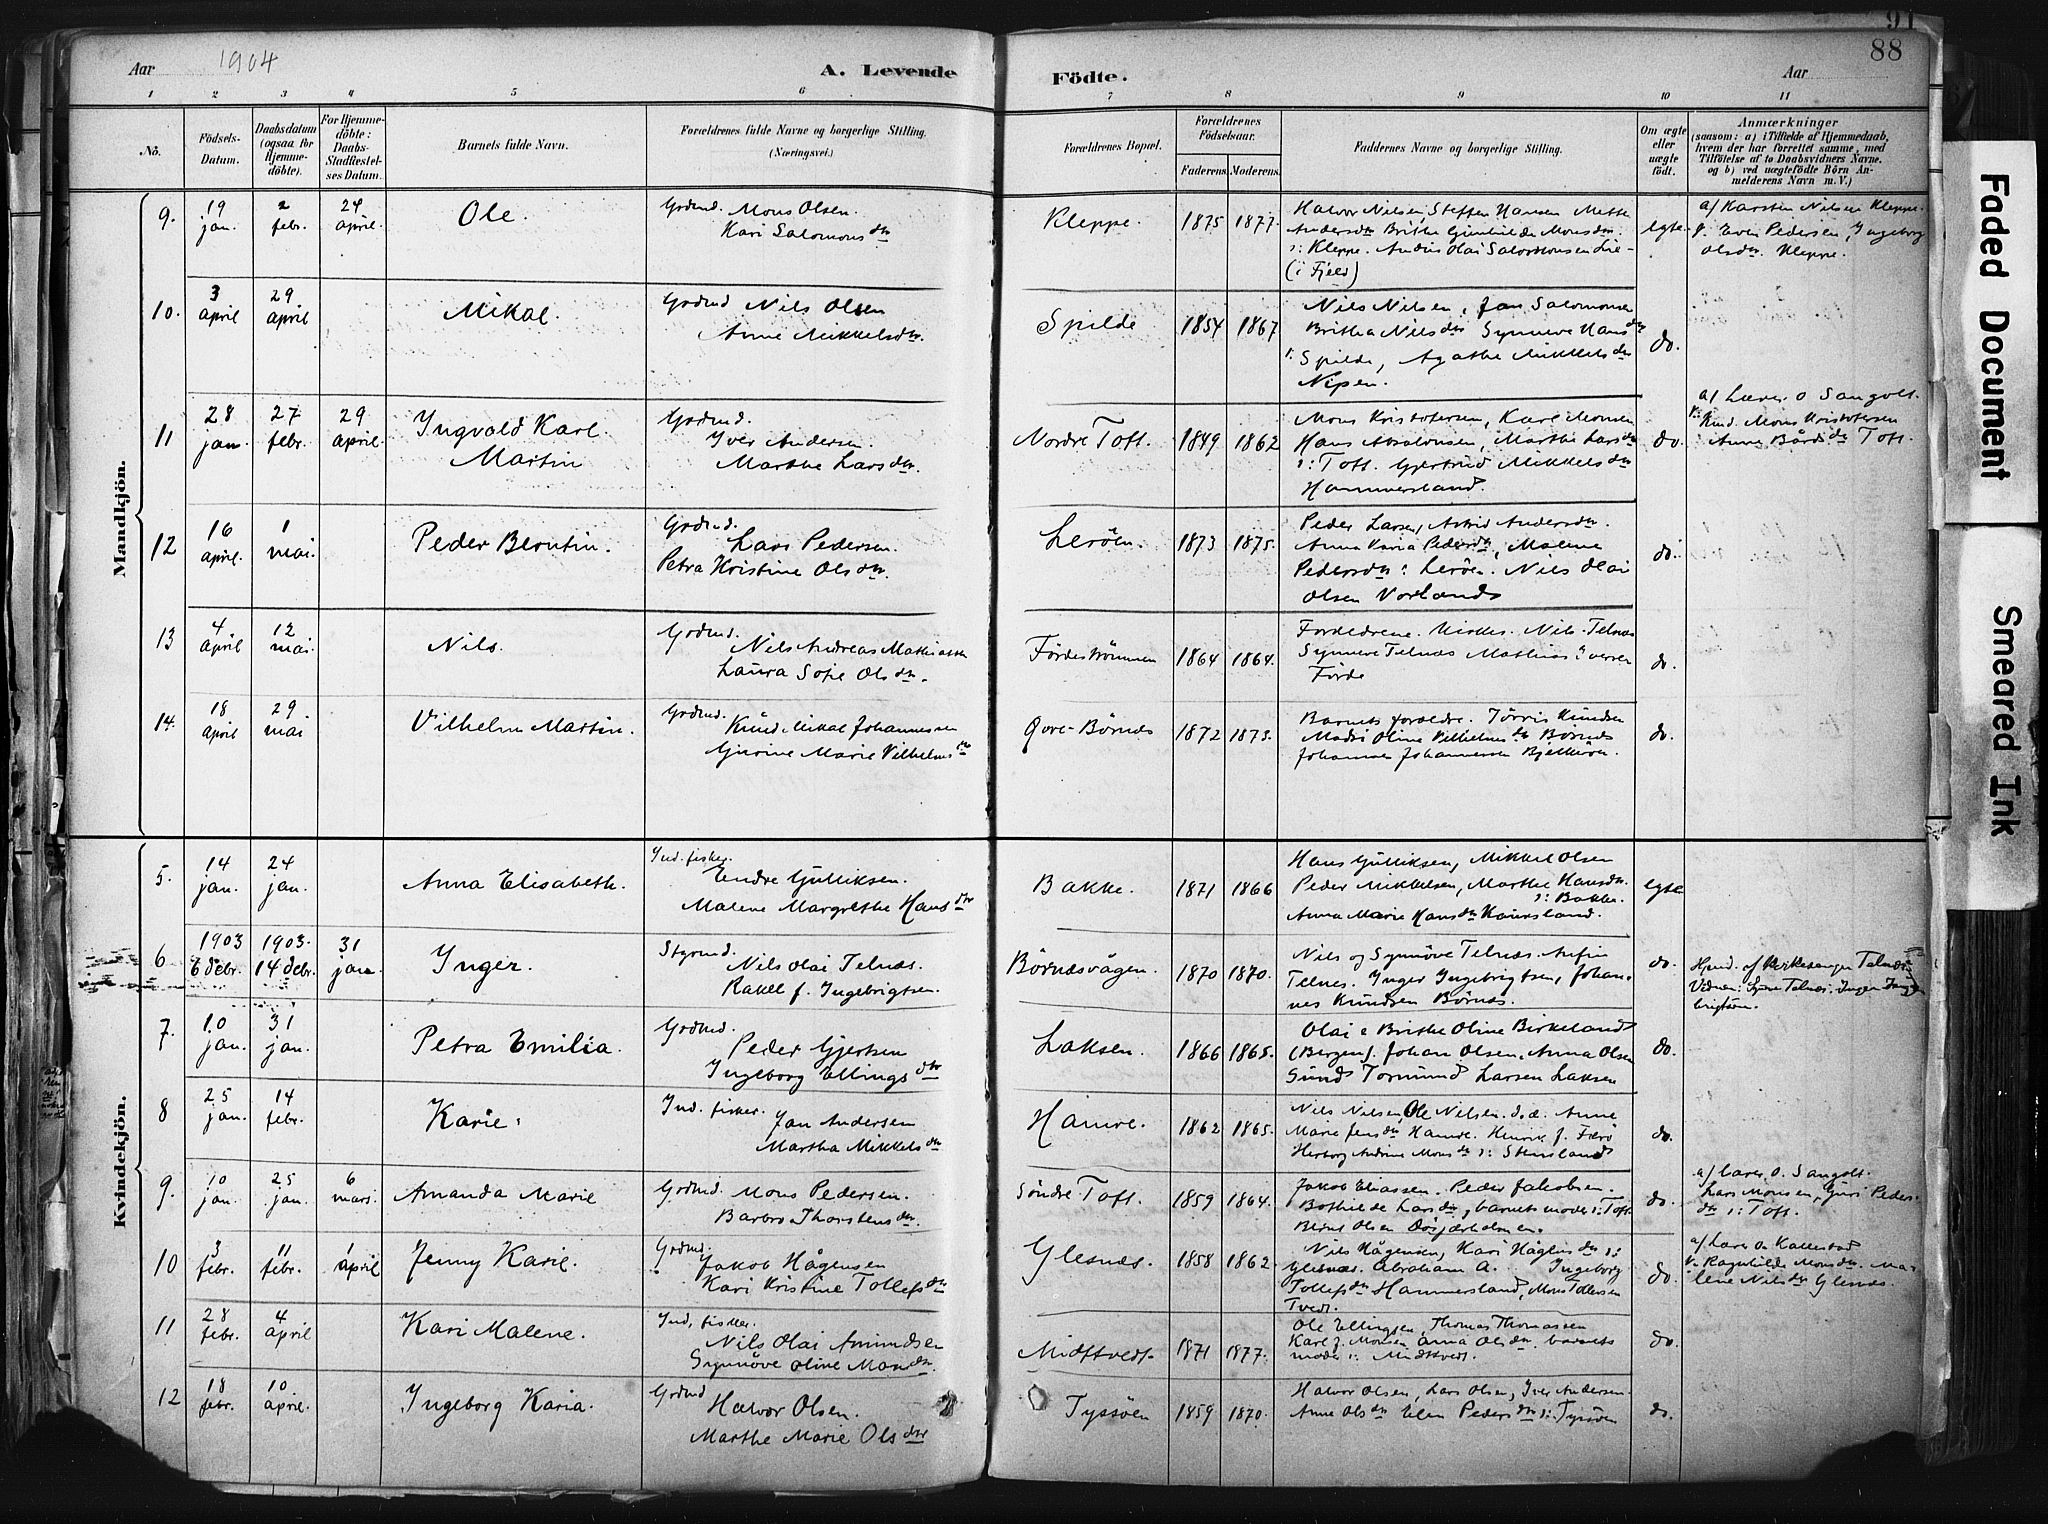 91
88
Aar 1904
A. Levende
Födte.
Aar
1 2 3 4 5 6 7 8 9 10 11
No.
Födsels-Datum.
Daabsdatum (ogsaa for Hjemmedöbte).
For Hjemmedöbte: Daabs-Stadfæstelses Datum.
Barnets fulde Navn.
Forældrenes fulde Navne og borgerlige Stilling.
(Næringsvei.)
Forældrenes Bopæl.
Forældrenes Födselsaar.
Faderens. Moderens.
Faddernes Navne og borgerlige Stilling.
Om ægte eller uægte födt.
Anmærkninger
(saasom: a) i Tilfælde af Hjemmedaab,
hvem der har forrettet samme, med
Tilföielse af to Daabsvidners Navne.
og b) ved uægtefödte Börn An-
melderens Navn m. V.)
Mandkjön.
9. 19 jan. 2 febr. 24 april. Ole. Grdmd. Mons Olsen. Kari Salomonsdtr Kleppe. 1875 1877. Halvor Nilsen, Steffen Hansen Mette
Andersdtr Brithe Gunhilde Monsdtr
: Kleppe. Andus Olai Salomonsen Lie
(i Fjeld)
egte.
a) Karsten Nilsen Kleppe.
Even Pedersen, Ingeborg
Olsdtr. Kleppe.
10. 3 april 29 april Mikal. Grdmd Nils Olsen Anne Mikkelsdtr. Spilde 1854 1867 Nils Nilsen, Jan Salomonsen
Britha Nilsdtr Synneve Hansdtr
: Spilde, Agathe Mikkelsdtr
Nipen.
do.
11 28 jan. 27 febr. 29 april. Ingvald Karl Martin Grdmd. Iver Andersen. Marthe Larsdtr. Nordre Toft. 1849 1862 Mons Kristofersen, Karl Monsen
Hans Absalonsen, Marthe Larsdtr
: Toft. Gjertrud Mikkelsdtr
Hammersland.
do.
a) Lærer O Sangolt.
V: Knd. Mons Kristofersen
: Anne Bårdsdtr Toft.
12 16 april. 1 mai. Peder Berntin. Grdmd. Lars Pedersen. Petra Kristine Olsdtr. Leröen. 1873 1875. Peder Larsen, Astrid Andersdtr.
Anna Karia Pedersdtr, Malene
Pedersdtr : Leröen. Nils Olai
Olsen Vorland
do.
13 4 april 12 mai. Nils. Grdmd. Nils Andreas Mathiassen Laura Sofie Olsdtr. Fördeströmmen 1864 1864. Forældrene. Kirkes. Nils Telnæs
Synneve Telnæs Mathias Iversen
Förde
do.
14. 18 april 29. mai Vilhelm Martin. Grdmd. Knud Mikal Johannessen Gurine Marie Vilhelmsdtr Qvre-Börnes 1872 1873. Barnets forældre. Törris Knudsen
Madsi Oline Vilhelmsdtr Bornes
Johannes Johannessen Bjelkarön.
do.
Kvindekjön.
5. 14 jan. 24 jan. Anna Elisabeth. Ind. fisker. Endre Gulliksen. Malene Margrethe Hansdtr Bakke. 1871 1866 Hans Gulliksen, Mikkel Olsen
Peder Mikkelsen, Marthe Hansdtr.
: Bakke.
Anna Marie Hansdtr Kausland.
egte
6 1903 6 debr. 1903. 14 debr. 31 jan. Inger. Styrmd. Nils Olai Telnæs. Rakel f. Ingebrigtsen. Börnesvågen. 1870 1870. Nils og Synnöve Telnæs. Anfin
Telnes. Inger Ingebrigtsen, Johan-
nes Knudsen Bornæs.
do.
Hjmd. af Kirkesanger Telnæs.
Vidner: Synn Telnæs. Inger Inge-
brigtsen.
7. 10 jan. 31 jan. Petra Emilia. Grdmd. Peder Gjertsen Ingeborg Ellingsdtr Laksen. 1866 1865. Olai & Brithe Oline Birkeland
(Bergen). Johan Olsen, Anna Olsen
Sund Tormund Larsen Laksen
do.
8 25 jan. 14 febr. Karie. Ind. fisker. Jan Andersen Martha Mikkelsdtr Hamre. 1862 1865. Nils Nilsen, Ole Nilsen. d.æ. Anne
Marie Jensdtr Hamre. Henrik J. Færö
Herborg Andrine Monsdtr : Stensland
do.
9. 10 jan. 25 jan. 6 mars. Amanda Marie Grdmd. Mons Pedersen. Barbro Thorstensdtr. Söndre Toft. 1859 1864. Jakob Eliassen. Peder Jakobsen.
Bothilde Larsdtr, barnets moder : Toft
Bernt Olsen Dösjæeholmen.
do.
a) Lærer O. Sangolt.
Lars Monsen, Guri Peders-
dtr : Toft.
10 3 febr. 11 febr. 1 april Jenny Karie. Grdmd. Jakob Hågensen Kari Kristine Tollefsdtr Glesnæs. 1858 1862. Nils Hågensen, Kari Hågensdtr :
Glesnæs. Abraham A. Ingeborg
Tollefsdtr Hammersland, Mons Tollefsen
Tvedt.
do.
a) Lærer O. Kallestad
V. Ragnhilde Monsdtr. Ma-
lene Nilsdtr Glesnæs.
11 28 febr. 4 april Kari Malene. Ind. fisker. Nils Olai Amundsen Synnöve Oline Monsdtr. Midttvedt. 1871 1877. Ole Ellingsen, Thomas Thomassen
Karl J. Monsen Anna Olsdtr. barnets
moder : Midttvedt.
do.
12 18 febr. 10 april. Ingeborg Karia. Grdmd Halvor Olsen. Marthe Marie Olsdtr Tyssöen 1859 1870. Halvor Olsen, Lars Olsen, Iver Andersen.
Anne Olsdtr Elen Pedersdtr : Tyssöen
do.
Faded Document
Smeared Ink